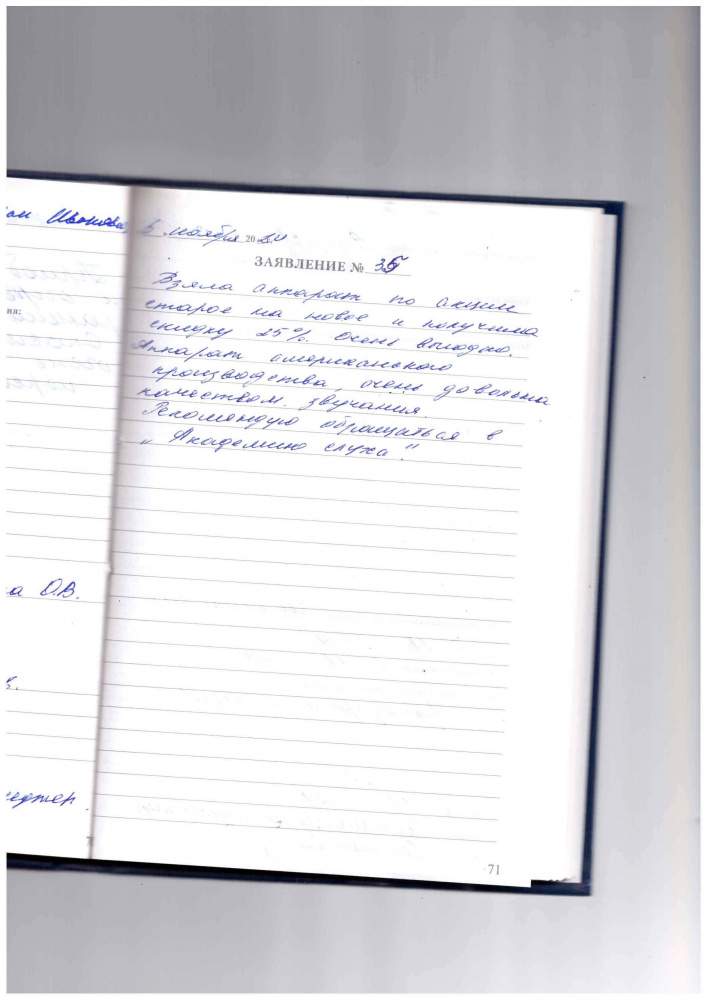 Иванова
5 ноября 2024
ЗАЯВЛЕНИЕ № 35
Взяла аппарат по акции
старое на новое и получила
скидку 25%. Очень выгодно.
Аппарат американского
производства, очень довольна
качеством звучания.
Рекомендую обращаться в
„Академию слуха".
ия:
а О.В.
в.
еджер
71